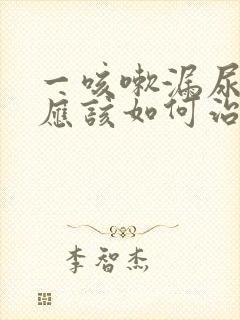 一咳嗽漏尿
应该如何治
李智杰